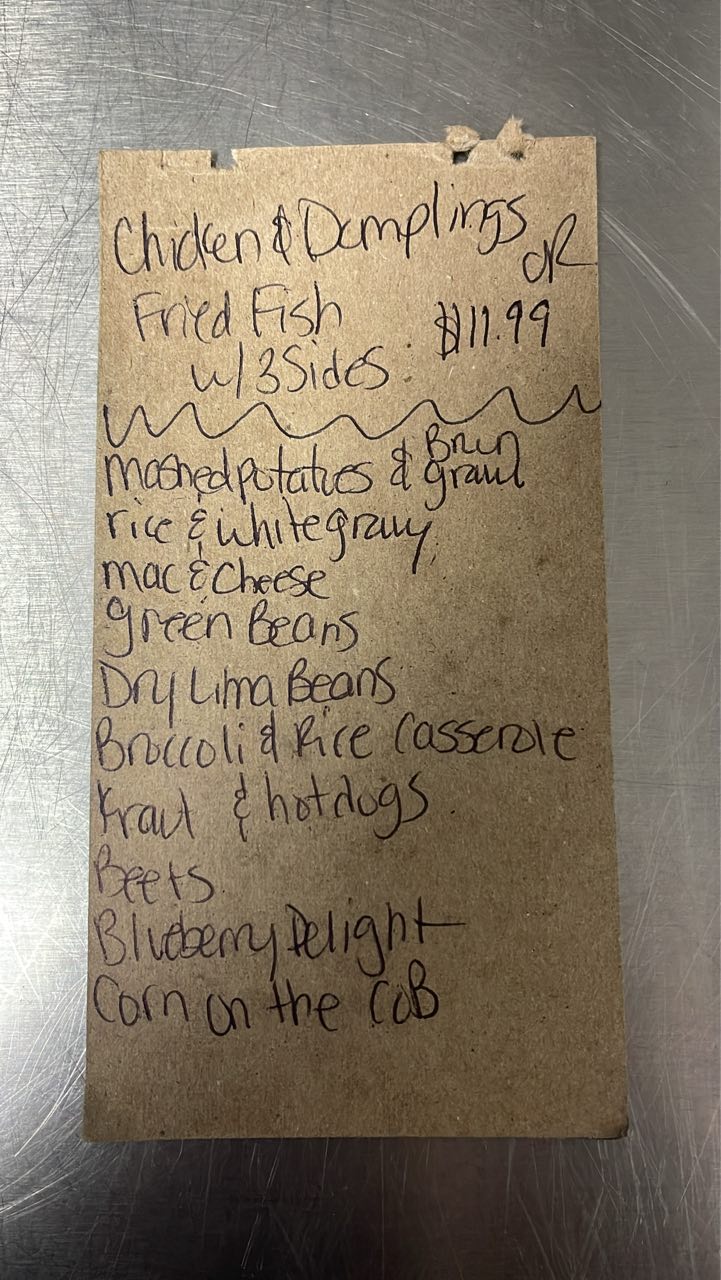 Chicken & Dumplings
OR
Fried Fish $11.99
w/ 3 Sides
mashed potatoes & Brwn gravy
rice & white gravy
mac & Cheese
green Beans
Dry Lima Beans
Broccoli & Rice Casserole
Kraut & hotdogs
Beets
Blueberry Delight
Corn on the CoB